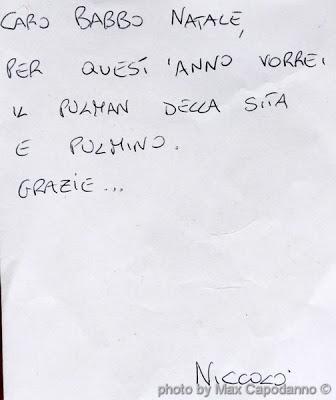 CARO BABBO NATALE,
PER QUEST'ANNO VORREI
IL PULMAN DELLA SITA
E PULMINO.
GRAZIE...
NICCOLO'
photo by Max Capodanno ©